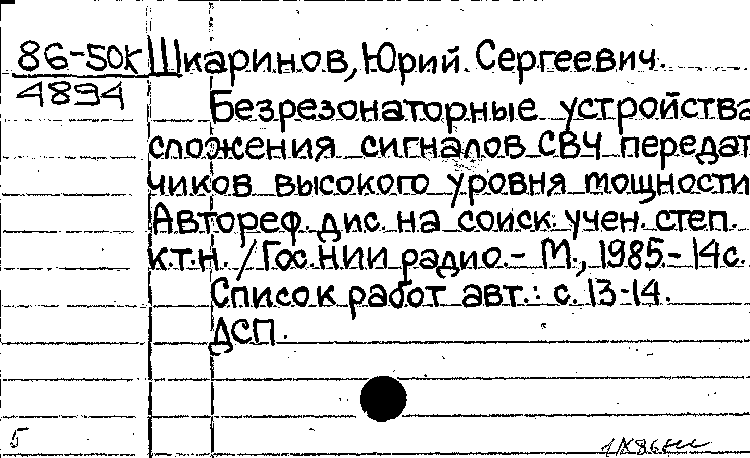 86-50к Шкаринов, Юрий Сергеевич.
4894
Безрезонаторные устройства
сложения сигналов СВЧ передат
чиков высокого уровня мощности
Автореф. дис. на соиск. учен. степ.
к.т.н. / Гос. НИИ радио. - М., 1985. - 14с.
Список работ авт.: с. 13-14.
ДСП.
5